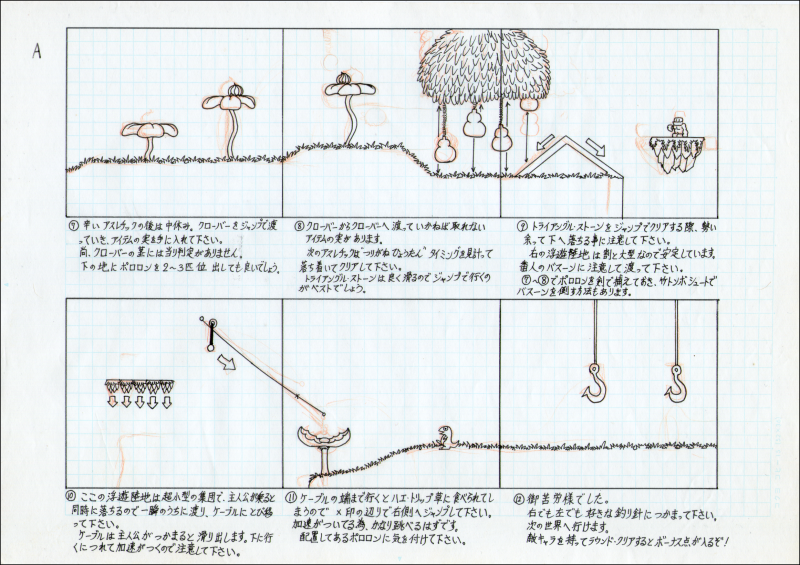 A
⑦ 辛いアスレチックの後は中休み。クローバーをジャンプで渡
っていき、アイテムの実を手に入れて下さい。
尚、クローバーの茎には当り判定がありません。
下の地上にポロロンを2〜3匹位出しても良いでしょう。
⑧ クローバーからクローバーへ渡っていかねば取れない
アイテムの実があります。
次のアスレチックは"つりがねひょうたん"タイミングを見計って
落ち着いてクリアして下さい。
トライアングルストーンは良く滑るのでジャンプで行くの
がベストでしょう。
⑨ トライアングル・ストーンをジャンプでクリアする際、勢い
余って下へ落ちる事に注意して下さい。
右の浮遊陸地は割と大型なので安定しています。
番人のバスーンに注意して渡って下さい。
⑦〜⑧でポロロンを剣で捕えておき、サトンボシュートで
バスーンを倒す方法もあります。
⑩ ここの浮遊陸地は超小型の集団で、主人公が乗ると
同時に落ちるので一瞬のうちに渡り、ケーブルにとび移
って下さい。
ケーブルは主人公がつかまると滑り出します。下に行
くにつれて加速がつくので注意して下さい。
⑪ ケーブルの端まで行くとハエ・トリップ草に食べられてし
まうので×印の辺りで右側へジャンプして下さい。
加速がついてる為、かなり跳べるはずです。
配置してあるポロロンに気を付けて下さい。
⑫ 御苦労様でした。
右でも左でも好きな釣り針につかまって下さい。
次の世界へ行けます。
敵キャラを持ってラウンド・クリアするとボーナス点が入るぞ!